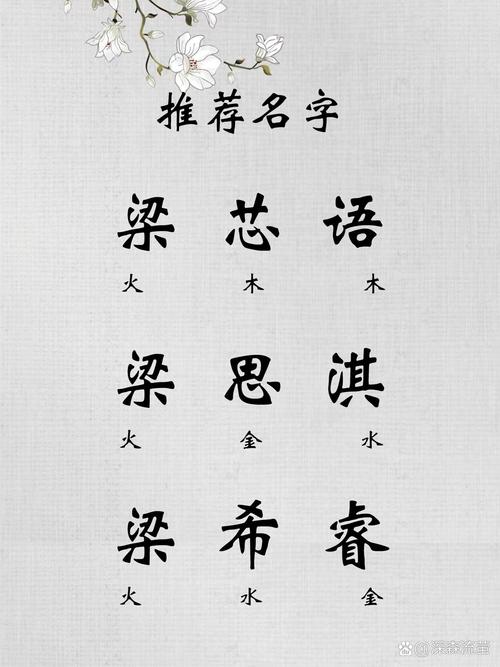 推荐名字
梁芯语
火 木 木
梁思淇
火 金 水
梁希睿
火 水 金
深森流萤